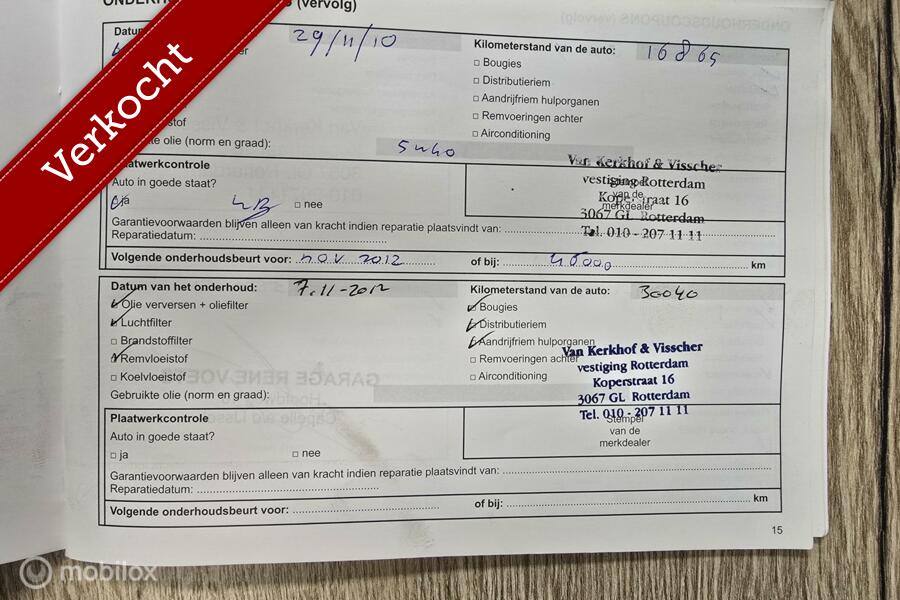 (vervolg)
29/11/10
Kilometerstand van de auto: 16865
Bougies
Distributieriem
Aandrijfriem hulporganen
Remvoeringen achter
Airconditioning
olie (norm en graad): 5w40
Plaatwerkcontrole
Auto in goede staat?
ja nee
Van Kerkhof & Visscher
vestiging Rotterdam
Koperstraat 16
3067 GL Rotterdam
Tel. 010 - 207 11 11
Stempel
van de
merkdealer
Garantievoorwaarden blijven alleen van kracht indien reparatie plaatsvindt van:
Reparatiedatum:
Volgende onderhoudsbeurt voor: nov 2012 of bij: 45000 km
Datum van het onderhoud: 7.11-2012
Kilometerstand van de auto: 30040
Olie verversen + oliefilter
Luchtfilter
Brandstoffilter
Remvloeistof
Koelvloeistof
Gebruikte olie (norm en graad):
Bougies
Distributieriem
Aandrijfriem hulporganen
Remvoeringen achter
Airconditioning
Van Kerkhof & Visscher
vestiging Rotterdam
Koperstraat 16
3067 GL Rotterdam
Tel. 010 - 207 11 11
Plaatwerkcontrole
Auto in goede staat?
ja nee
Stempel
van de
merkdealer
Garantievoorwaarden blijven alleen van kracht indien reparatie plaatsvindt van:
Reparatiedatum:
Volgende onderhoudsbeurt voor: of bij: km
15
Verkocht
mobilox